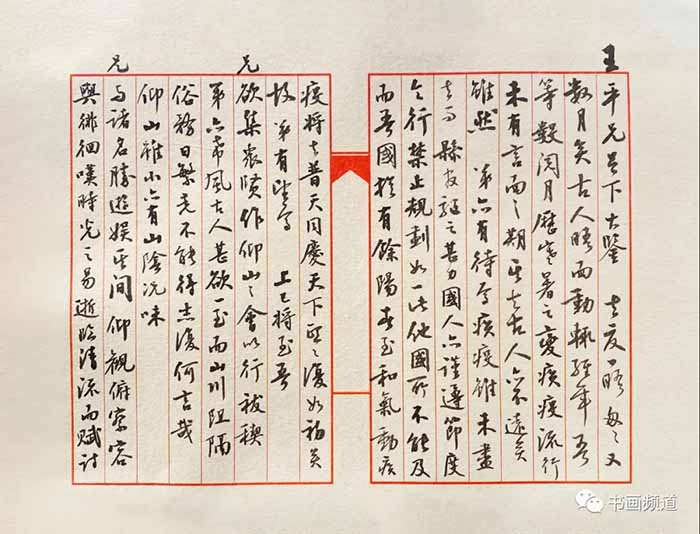 王平兄足下大鑒 去夏一晤匆匆又
數月矣古人晤面動輒經年吾
等數閱月歷寒暑之變疾疫流行
未有言面之期其去古人亦不遠矣
雖然 弟亦有待焉疾疫雖未盡
去而縣官驅之甚力國人亦謹遵節度
令行禁止規劃如一此他國所不能及
而吾國獨有餘陽春至和氣動疾
疫將去普天同慶天下熙熙復如初矣
故弟有望焉 上巳將至吾
兄欲集眾賢作仰山之會以行祓禊
弟亦希風古人甚欲一至而山川阻隔
俗務日繁竟不能得志復何言哉
仰山雖小亦有山陰況味
兄與諸名勝遊娛其間仰觀俯察容
與徘徊嘆時光之易逝臨清流而賦詩
书画频道